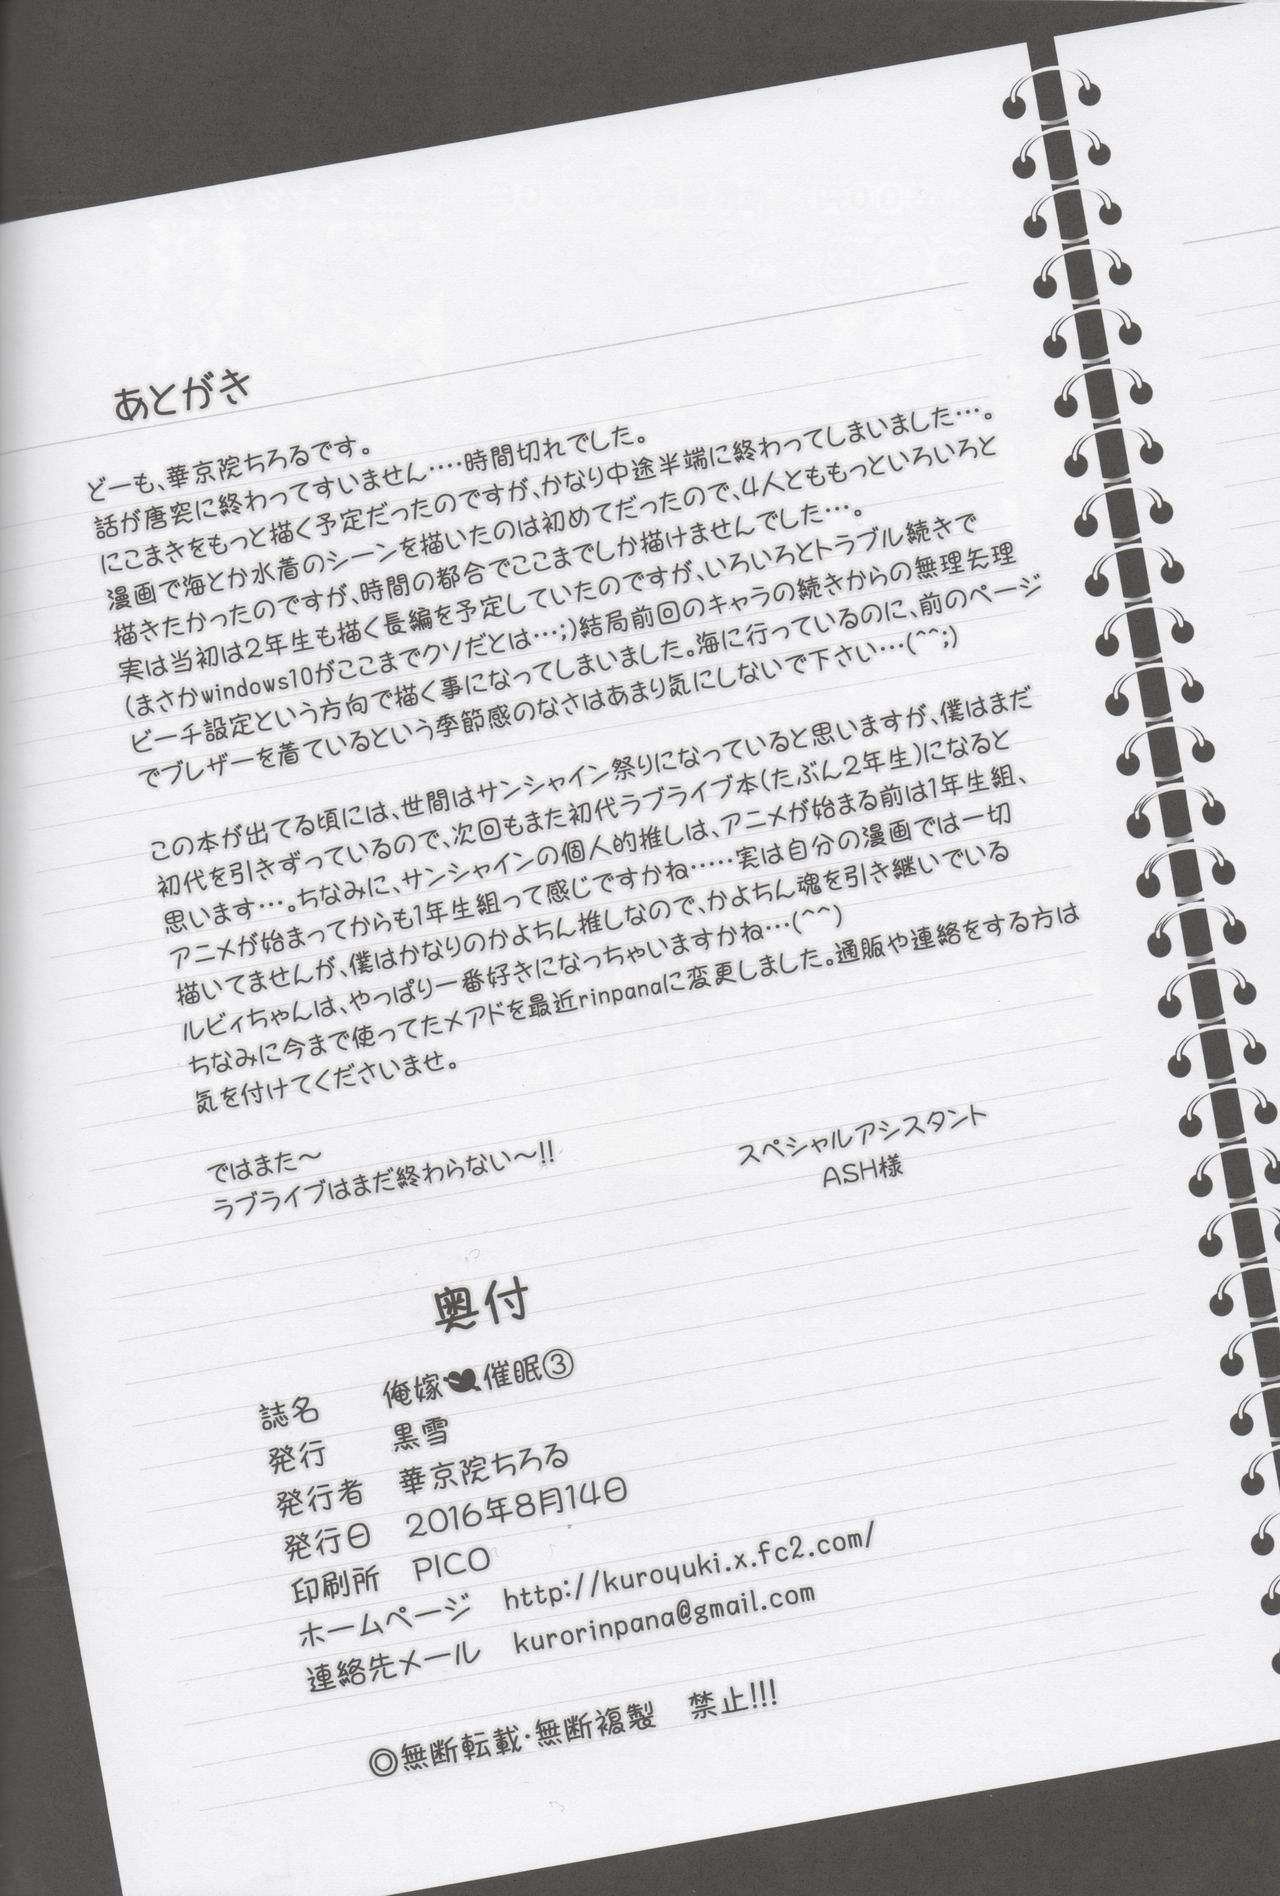 あとがき
どーも、華京院ちろるです。
話が唐突に終わってすいません‥‥時間切れでした。
にこまきをもっと描く予定だったのですが、かなり中途半端に終わってしまいました…。
漫画で海とか水着のシーンを描いたのは初めてだったので、4人とももっといろいろと
描きたかったのですが、時間の都合でここまでしか描けませんでした…。
実は当初は2年生も描く長編を予定していたのですが、いろいろとトラブル続きで
(まさかwindows10がここまでクソだとは…;)結局前回のキャラの続きからの無理矢理
ビーチ設定という方向で描く事になってしまいました。海に行っているのに、前のページ
でブレザーを着ているという季節感のなさはあまり気にしないで下さい…(^^;)
この本が出てる頃には、世間はサンシャイン祭りになっていると思いますが、僕はまだ
初代を引きずっているので、次回もまた初代ラブライブ本(たぶん2年生)になると
思います…。ちなみに、サンシャインの個人的推しは、アニメが始まる前は1年生組、
アニメが始まってからも1年生組って感じですかね……実は自分の漫画では一切
描いてませんが、僕はかなりのかよちん推しなので、かよちん魂を引き継いでいる
ルビィちゃんは、やっぱり一番好きになっちゃいますかね…(^^)
ちなみに今まで使ってたメアドを最近rinpanaに変更しました。通販や連絡をする方は
気を付けてくださいませ。
ではまた～
ラブライブはまだ終わらない～!!
スペシャルアシスタント
ASH様
奥付
誌名 俺嫁催眠③
発行 黒雪
発行者 華京院ちろる
発行日 2016年8月14日
印刷所 PICO
ホームページ http://kuroyuki.x.fc2.com/
連絡先メール kurorinpana@gmail.com
◎無断転載・無断複製 禁止!!!